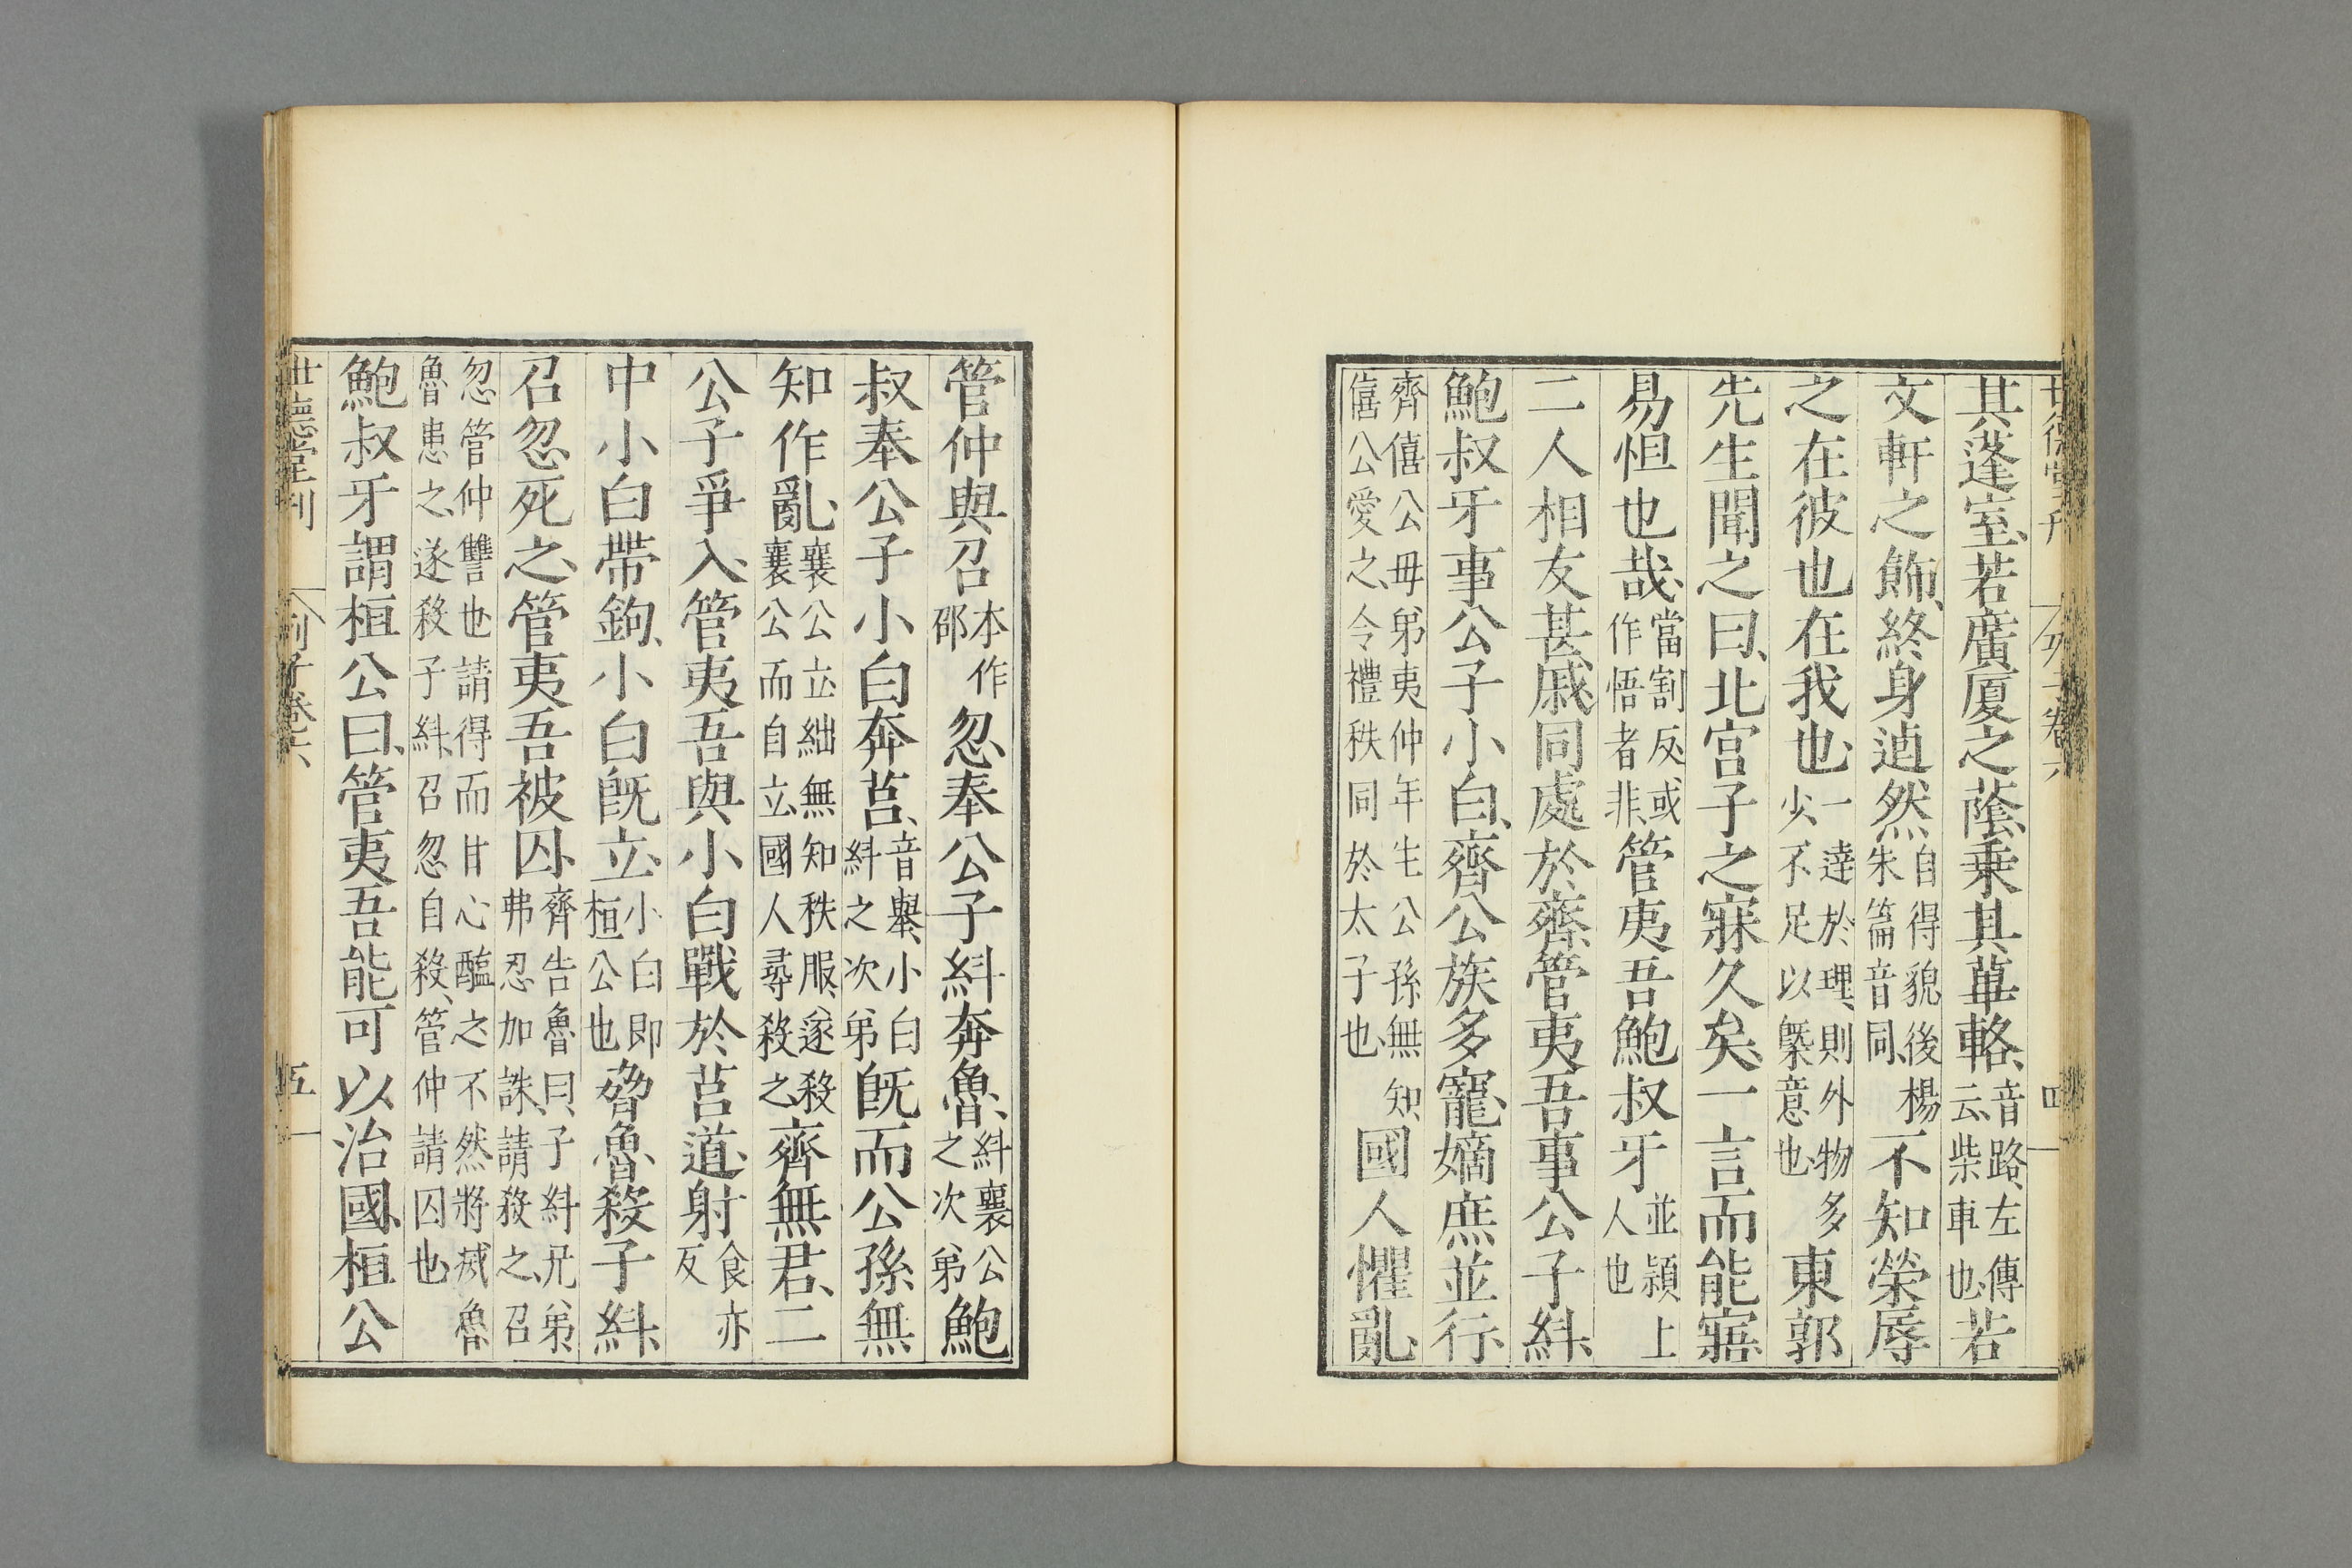 其蓬室、若廣厦之蔭、乗其蓽輅、音路、左傳云、柴車也、若
文軒之飾、終身逌然、自得貌後楊朱篇音同、不知榮辱
之在彼也在我也、一達於理、則外物多少、不足以槩意也、東郭
先生聞之曰、北宫子之寐久矣、一言而能寤、
易怛也哉、當割反或作悟者非、管夷吾鮑叔牙並潁上人也
二人相友甚戚、同處於齊、管夷吾事公子糾、
鮑叔牙事公子小白、齊公族多寵、嫡庶並行、
齊僖公母弟夷仲年生公孫無知、僖公愛之、令禮秩同於太子也、國人懼亂、
世德堂刊 列子卷六 四
管仲與召本作邵忽奉公子糾奔魯、糾襄公之次弟、鮑
叔奉公子小白奔莒、音舉、小白糾之次弟、旣而公孫無
知作亂、襄公立絀無知秩服、遂殺襄公而自立、國人尋殺之、齊無君、二
公子爭入、管夷吾與小白戰於莒道、射食亦反
中小白帶鉤、小白旣立、小白即桓公也脅魯殺子糾、
召忽死之、管夷吾被囚、齊告魯曰、子糾兄弟、弗忍加誅、請殺之、召
忽管仲讐也請得而甘心醢之、不然將滅魯、魯患之、遂殺子糾、召忽自殺、管仲請囚也、
鮑叔牙謂桓公曰、管夷吾能可以治國、桓公
世德堂刊 列子卷六 五